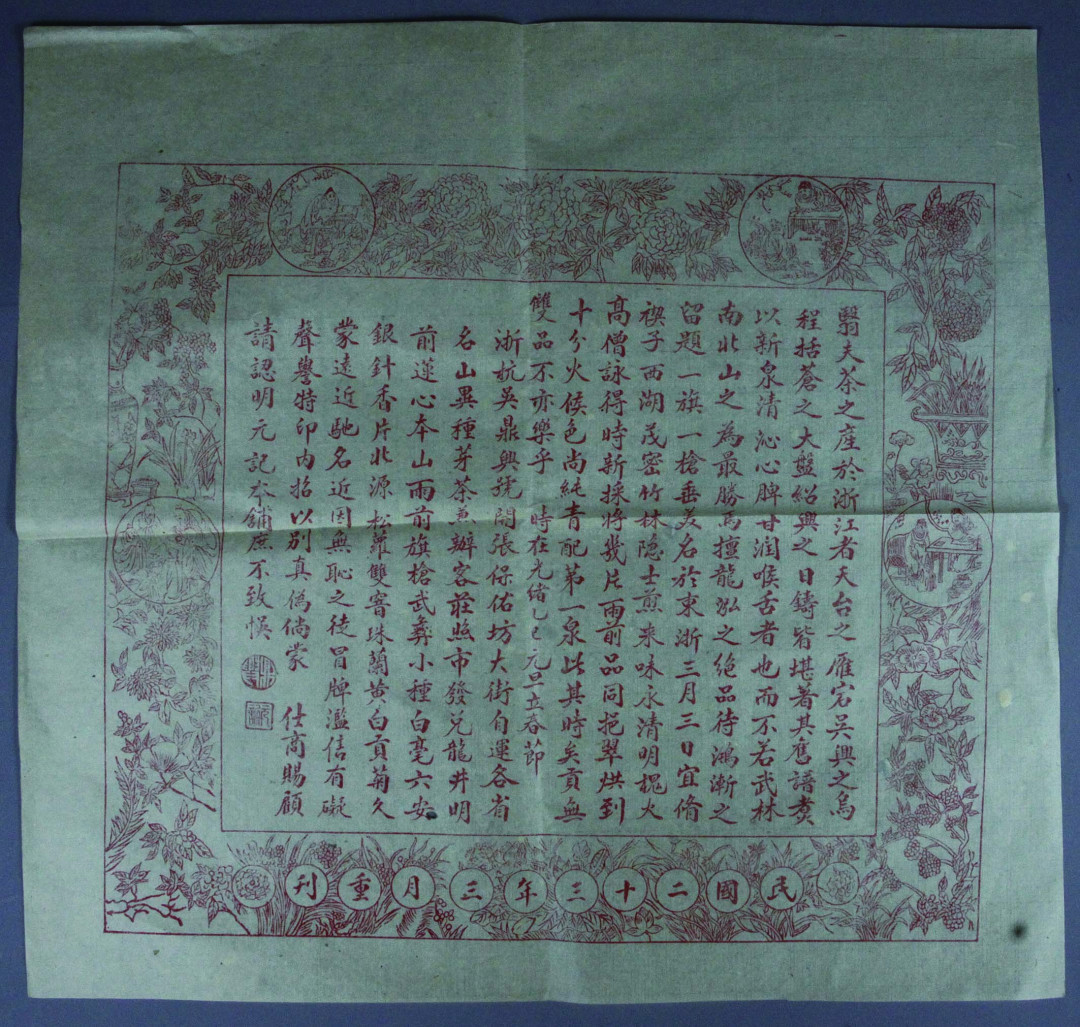 翳夫茶之産於浙江者天台之雁宕吳興之烏
程括蒼之大盤紹興之日鑄皆堪著其舊譜煑
以新泉清沁心脾甘潤喉舌者也而不若武林
南北山之為最勝焉擅龍泓之絕品待鴻漸之
留題一旗一槍垂美名於東浙三月三日宜脩
禊于西湖茂密竹林隐士煎来味永清明槐火
高僧詠得時新採将幾片雨前品同挹翠烘到
十分火候色尚純青配第一泉此其時矣貢無
雙品不亦樂乎 時在光緒乙巳元旦立春節
浙杭吳鼎興號開張保佑坊大街自運各省
名山異種芽茶兼辦客莊照市發兑龍井明
前蓮心本山雨前旗槍武彝小種白毫六安
銀針香片北源松蘿雙窨珠蘭黄白貢菊久
蒙遠近馳名近因無恥之徒冒牌濫信有礙
聲譽特印内招以别真偽倘蒙 仕商賜顧
請認明元記本鋪庶不致悞
民國二十三年三月重刊